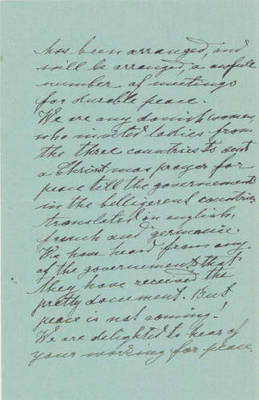 has been arranged, and
will be arranged, a
number of meetings
for durable peace.
We are any danish women,
who invited ladies from
the three countries to sent
a Christmas prayer for
peace till the governements
in the belligerent countries
translated in english,
french and germanic.
We have heard from any
of the governements that
they have received the
pretty document. But
peace is not coming!
We are delighted to hear of
your working for peace.